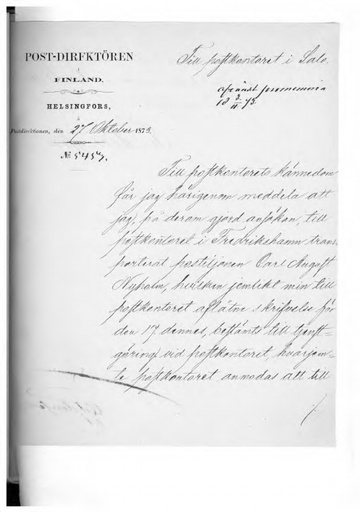 POST-DIREKTÖREN
I
FINLAND.
HELSINGFORS,
Postdirektionen, den 27 Oktober 1873.
№ 5457.
Till postkontoret i Salo.
promemoria
18 3/11 73.
Till postkontorets kännedom
får jag härigenom meddela att
jag, på derom gjord ansökan, till
postkontoret i Fredrikshamn trans-
porterat postiljonen Carl August
Nyholm, hvilken jemlikt min till
postkontoret aflåtne skrifvelse för
den 17 dennes, bestämts till tjenst-
göring vid postkontoret, hvarjem-
te postkontoret anmodas att till